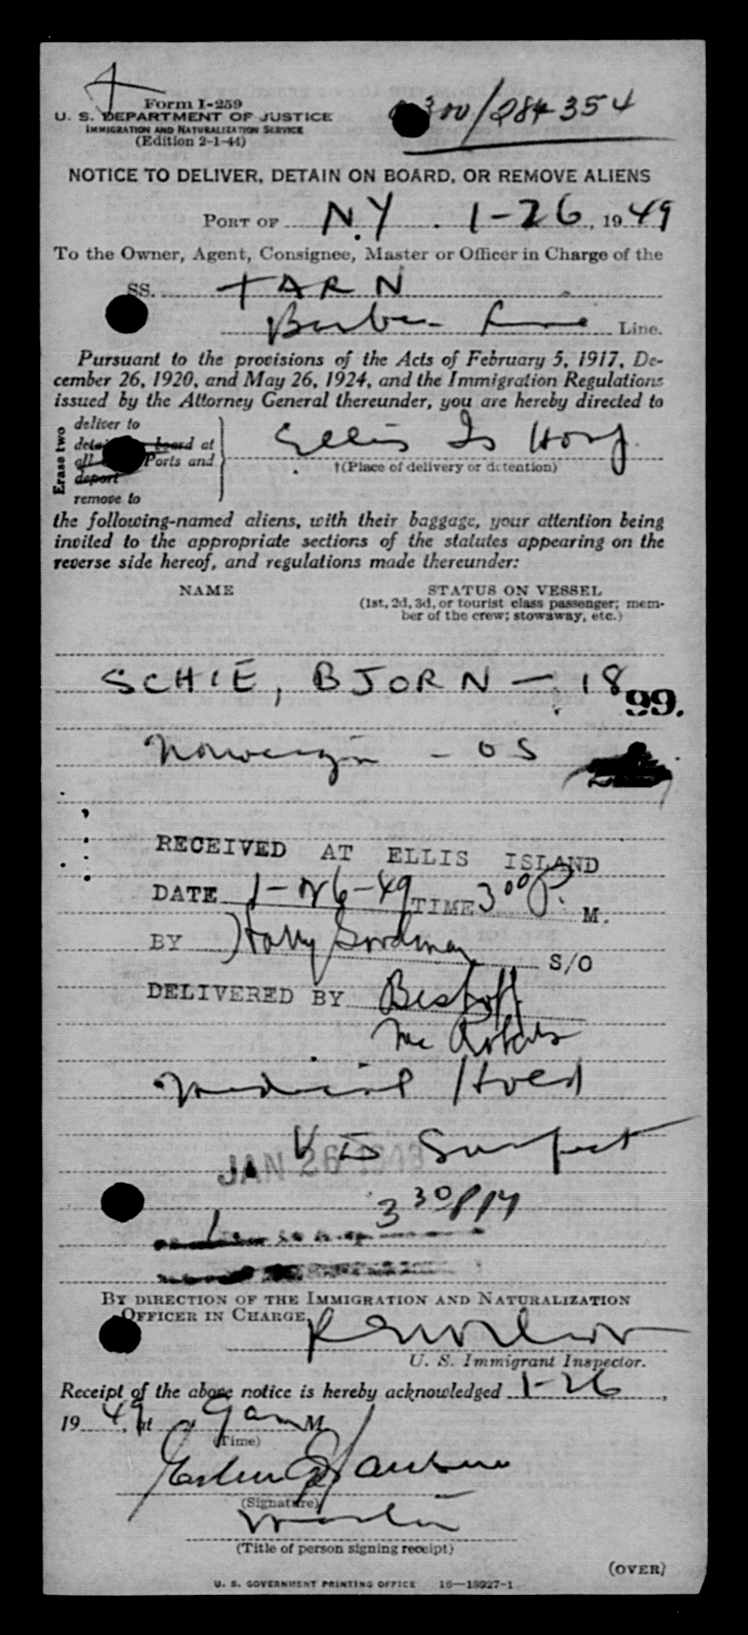 Form I-259
U. S. DEPARTMENT OF JUSTICE
IMMIGRATION AND NATURALIZATION SERVICE
(Edition 2-1-44)
300/284354
NOTICE TO DELIVER, DETAIN ON BOARD, OR REMOVE ALIENS
PORT OF N.Y. 1-26, 1949
To the Owner, Agent, Consignee, Master or Officer in Charge of the
SS. TARN
Barber Line Line.
Pursuant to the provisions of the Acts of February 5, 1917, De-
cember 26, 1920, and May 26, 1924, and the Immigration Regulations
issued by the Attorney General thereunder, you are hereby directed to
Erase two
deliver to
board at
all Ports and
deport
remove to
Ellis Is Hosp.
†(Place of delivery or detention)
the following-named aliens, with their baggage, your attention being
invited to the appropriate sections of the statutes appearing on the
reverse side hereof, and regulations made thereunder:
NAME STATUS ON VESSEL
(1st, 2d, 3d, or tourist class passenger; mem-
ber of the crew; stowaway, etc.)
SCHIE, BJORN - 18
99.
Norwegian - OS
RECEIVED AT ELLIS ISLAND
DATE 1-26-49 TIME 3 00 P. M.
BY Harry Goodman S/O
DELIVERED BY Bishoff
Mc Roberts
Medical Hold
VD Suspect
JAN 26
3 30 PM
BY DIRECTION OF THE IMMIGRATION AND NATURALIZATION
OFFICER IN CHARGE
U. S. Immigrant Inspector.
Receipt of the above notice is hereby acknowledged 1-26,
1949, at 9 am M
(Time)
(Signature)
(Title of person signing receipt)
(OVER)
U. S. GOVERNMENT PRINTING OFFICE 16—18027-1